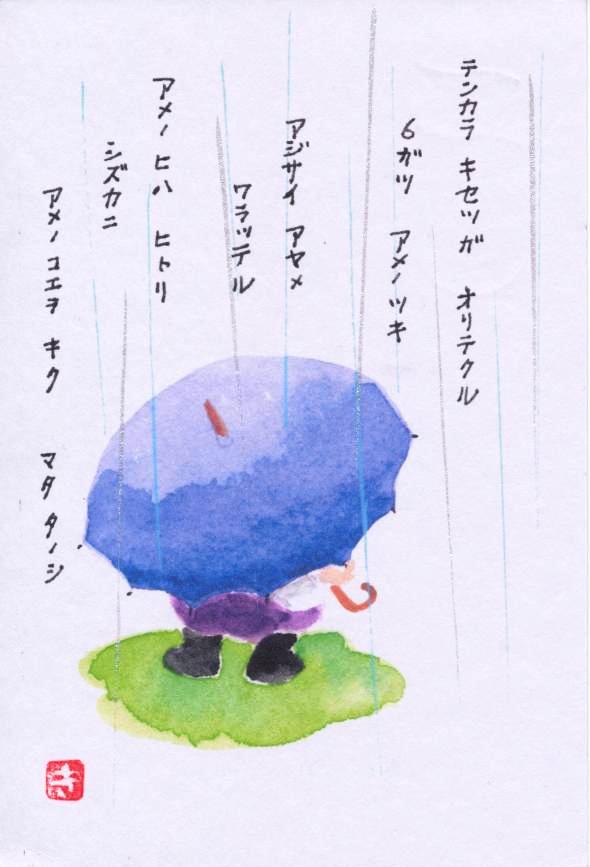 テンカラ キセツガ オリテクル
6ガツ アメノツキ
アジサイ アヤメ
ワラッテル
アメノヒハ ヒトリ
シズカニ
アメノコエヲ キク マタ タノシ
き